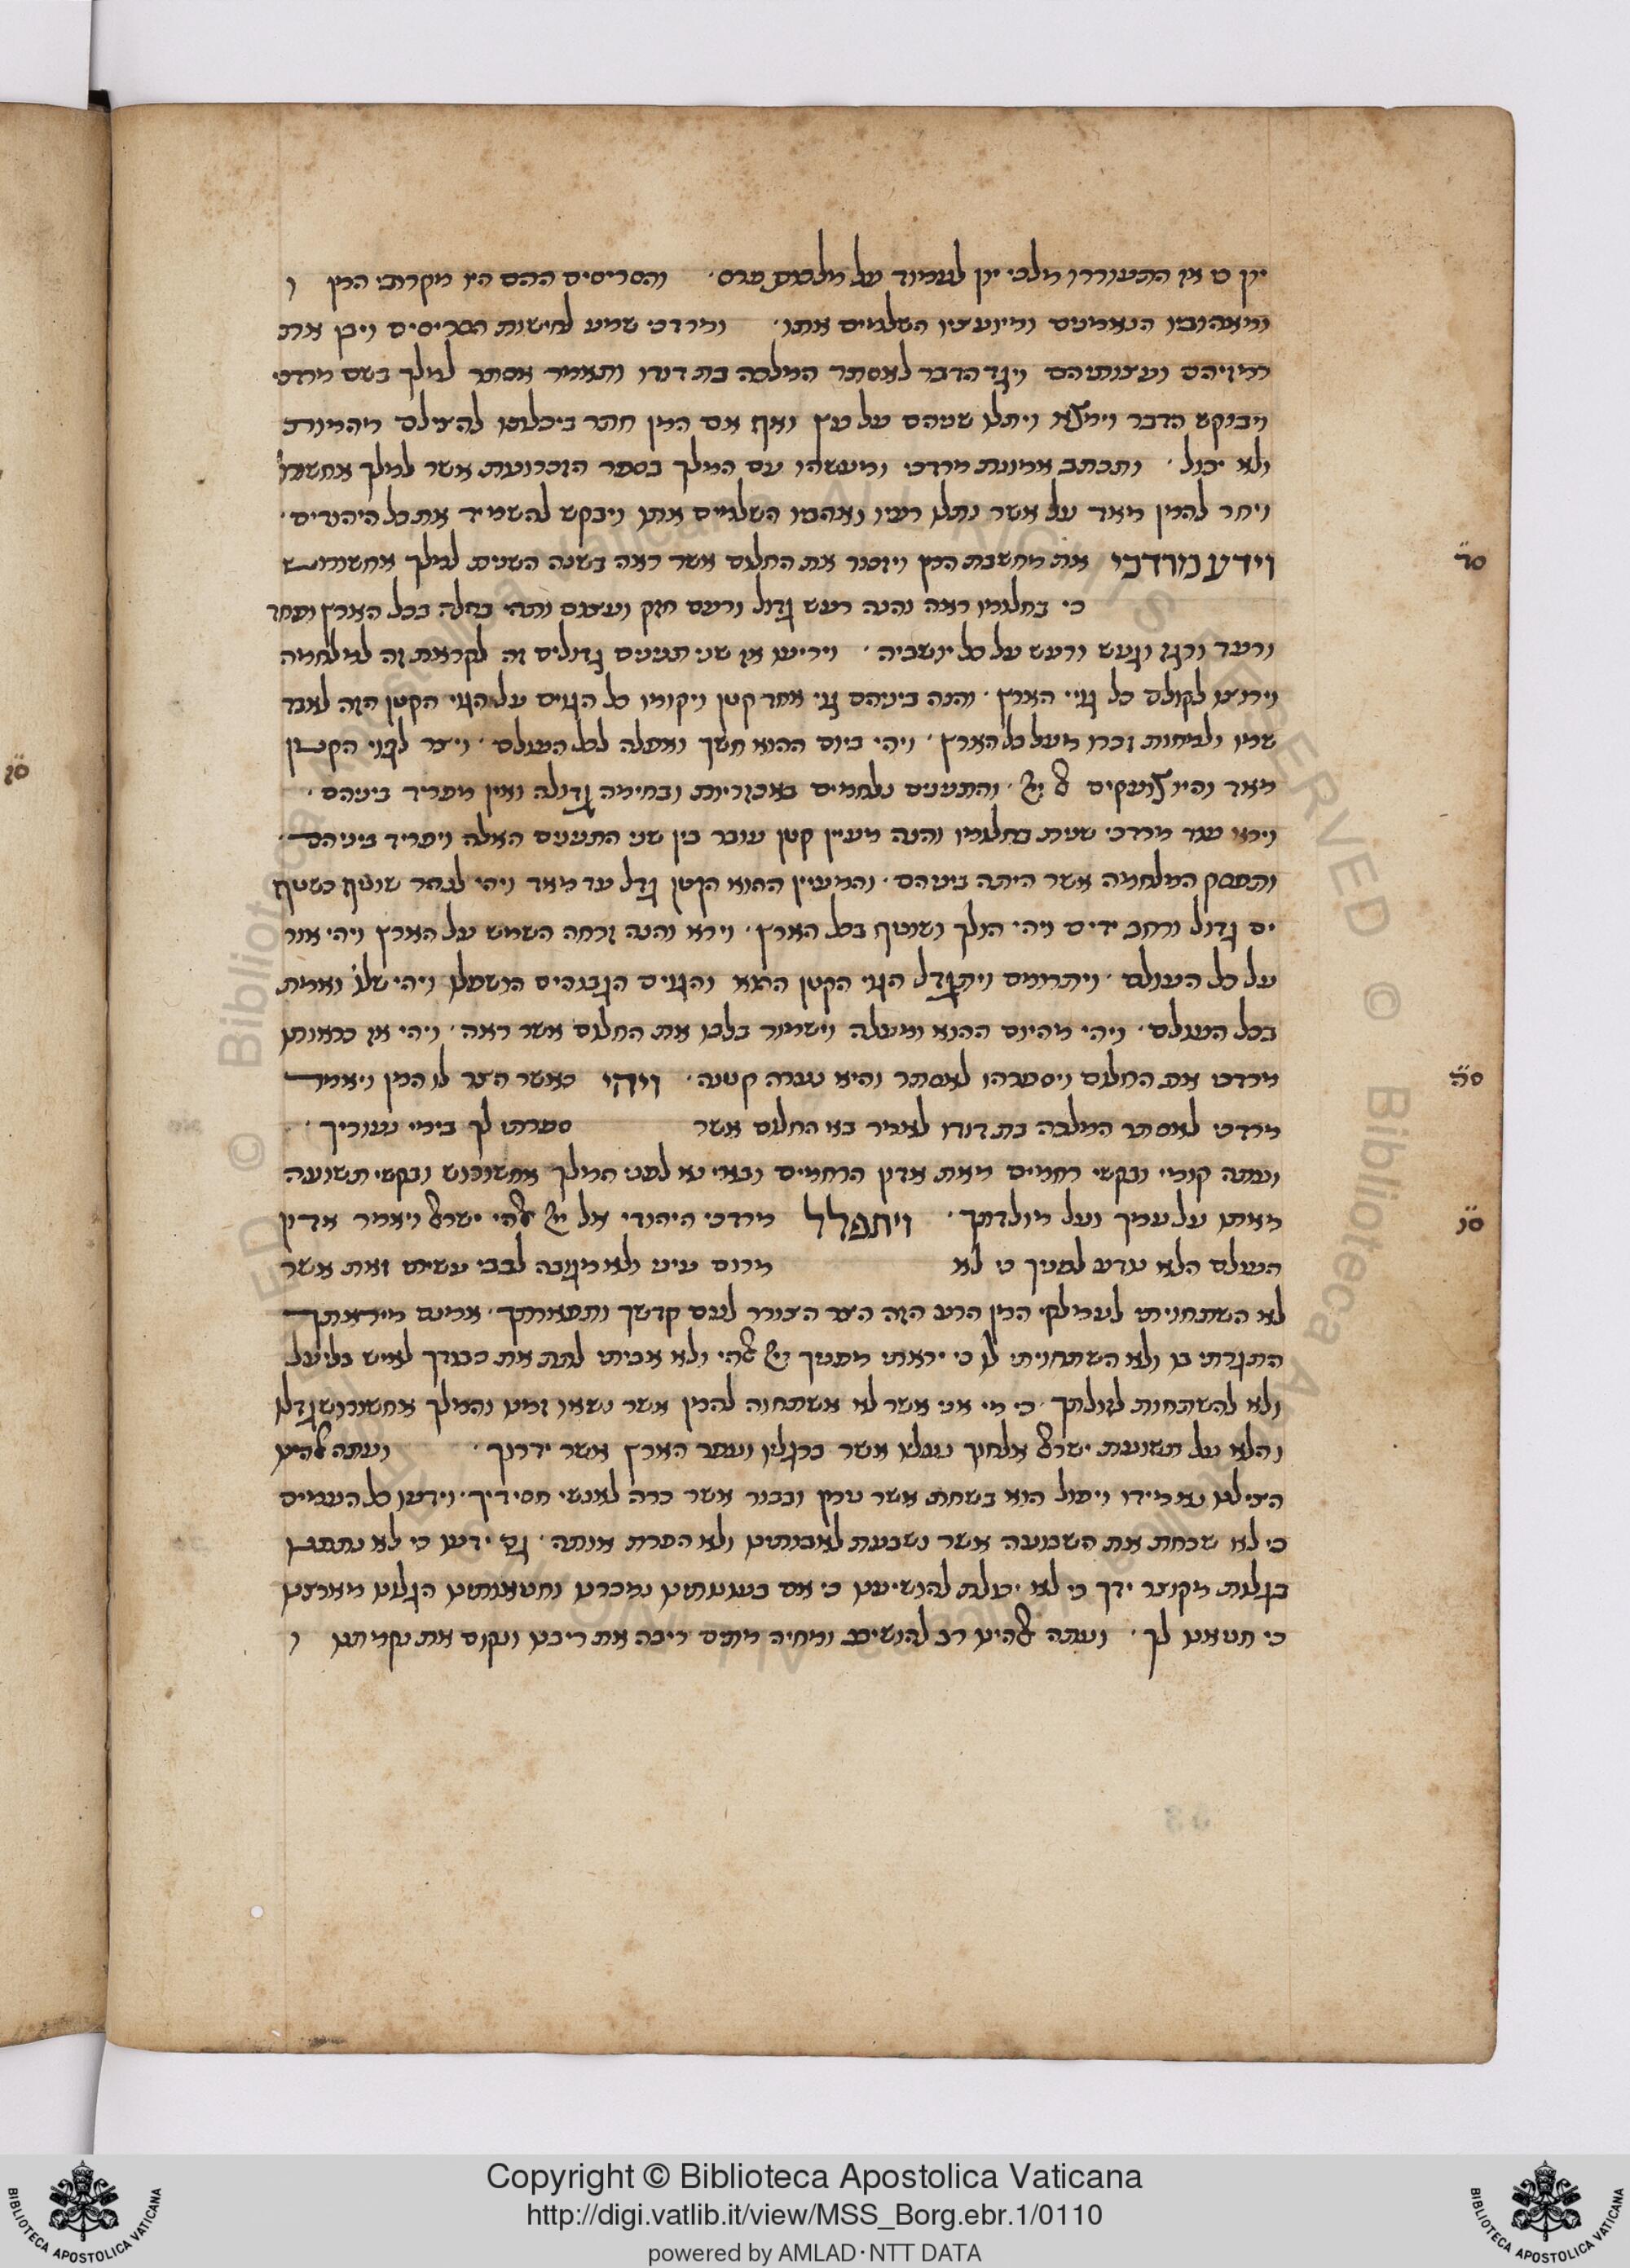 יון כי אז התעוררו מלכי יון לעמוד על מלכות פרס׳ והסריסים ההם היו מקרובי המן ו
ומאהוביו הנאמנים ומיועציו השלמים אתו׳ ומרדכי שמע לחישות הסריסים ויבן את
רמזיהם ועצותיהם ויגד הדבר לאסתר המלכה בת דודו ותאמר אסתר למלך בשם מרדכי
ויבוקש הדבר וימצא ויתלו שניהם על עץ ואף אם המן חתר ביכלתו להצילם מהמות
ולא יכול׳ ותכתב אמונת מרדכי ומעשהו עם המלך בספר הזכרונות אשר למלך אחשורו׳
ויחר להמן מאד על אשר נתלו רעיו ואהביו השלמים אתו ויבקש להשמיד את כל היהודים׳
וידע מרדכי את מחשבת המן ויזכור את החלום אשר ראה בשנה השנית למלך אחשורוש
כי בחלומו ראה והנה רעש גדול ורעם חזק ועצום ותהי בהלה בכל הארץ ופחד
ורעד ורגז וגעש ורעש על כל יושביה׳ ויריעו אז שני תנינים גדולים זה לקראת זה למלחמה
וירוצו לקולם כל גויי הארץ׳ והנה ביניהם גוי אחד קטן ויקומו כל הגוים על הגוי הקטן הזה לאבד
שמו ולמחות זכרו מעל כל הארץ׳ ויהי ביום ההוא חשך ואפלה לכל העולם׳ ויצר לגוי הקטן
מאד והיו צועקים אל ייי׳ והתנינים נלחמים באכזריות ובחימה גדולה ואין מפריד ביניהם׳
וירא עוד מרדכי שנית בחלומו והנה מעיין קטן עובר בין שני התנינים האלה ויפריד ביניהם׳
ותפסק המלחמה אשר היתה ביניהם׳ והמעיין ההוא הקטן גדל עד מאד ויהי לנהר שוטף כשטף
ים גדול ורחב ידים ויהי הולך ושוטף בכל הארץ׳ וירא והנה זרחה השמש על הארץ ויהי אור
על כל העולם׳ ויתרומם ויתגדל הגוי הקטן ההוא והגוים הגבוהים הושפלו ויהי שלו׳ ואמת
בכל העולם׳ ויהי מהיום ההוא ומעלה וישמור בלבו את החלום אשר ראה׳ ויהי אז כראותו
מרדכי את החלום ויספרהו לאסתר והיא נערה קטנה׳ ויהי כאשר הצר לו המן ויאמר
מרדכי לאסתר המלכה בת דודו לאמר בא החלום אשר ספרתי לך בימי נעוריך׳
ועתה קומי ובקשי רחמים מאת אדון הרחמים ובאי נא לפני המלך אחשורוש ובקשי תשועה
מאתו על עמך ועל מולדתך׳ ויתפלל מרדכי היהודי אל ייי אלהי ישראל ויאמר אדון
העולם הלא נודע לפניך כי לא מרום עיני ולא מגובה לבבי עשיתי זאת אשר
לא השתחויתי לעמלקי המן הרע הזה הצר הצורר לעם קדשך ותפארתך׳ אמנם מיראתך
התגרתי בו ולא השתחויתי לו כי יראתי מפניך ייי אלהי ולא אביתי לתת את כבודך לאיש בליעל
ולא להשתחות לזולתך׳ כי מי אני אשר לא אשתחוה להמן אשר נשאו זמנו והמלך אחשורוש גדלו
והלא על תשועת ישראל אלחוך נעלו אשר ברגליו ועפר הארץ אשר ידרוך׳ ועתה אלהינו
הצילנו נא מידו ויפול הוא בשחת אשר טמן ובבור אשר כרה לאנשי חסידיך׳ וידעו כל העמים
כי לא שכחת את השבועה אשר נשבעת לאבותינו ולא הפרת אותה׳ גם ידעו כי לא נתתנו
בגלות מקוצר ידך כי לא יכולת להושיענו כי אם בעונותינו נמכרנו וחטאותינו הגלונו מארצנו
כי חטאנו לך׳ ועתה אלהינו רב להושיע ומחיה מתים ריבה את ריבנו ונקום את נקמתנו ו
סד
סה
סו
סז
Copyright © Biblioteca Apostolica Vaticana
http://digi.vatlib.it/view/MSS_Borg.ebr.1/0110
powered by AMLAD · NTT DATA